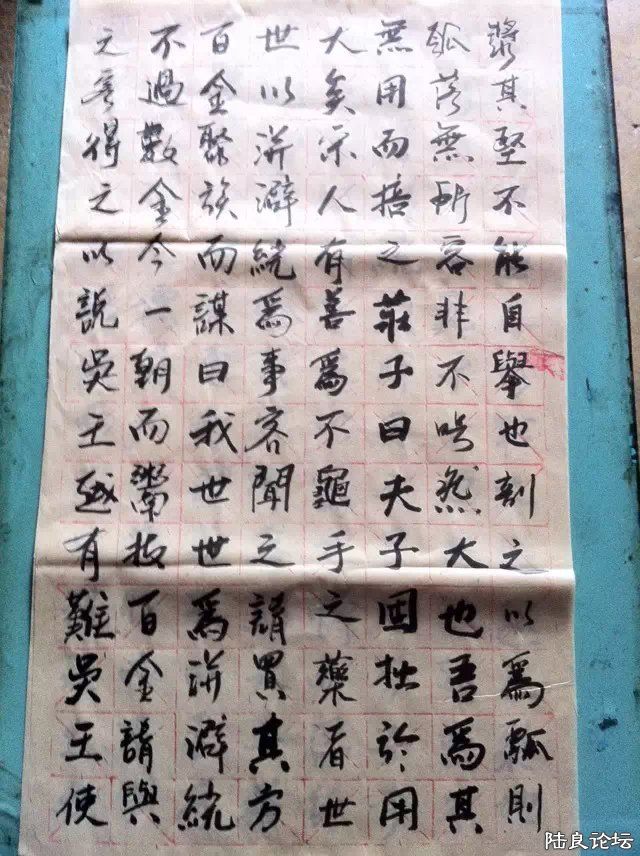 漿其堅不能自舉也剖之以爲瓢則
瓠落無所容非不呺然大也吾爲其
無用而掊之莊子曰夫子固拙於用
大矣宋人有善爲不龜手之藥者世
世以洴澼絖爲事客聞之請買其方
百金聚族而謀曰我世世爲洴澼絖
不過數金今一朝而鬻技百金請與
之客得之以說吳王越有難吳王使
陆良论坛